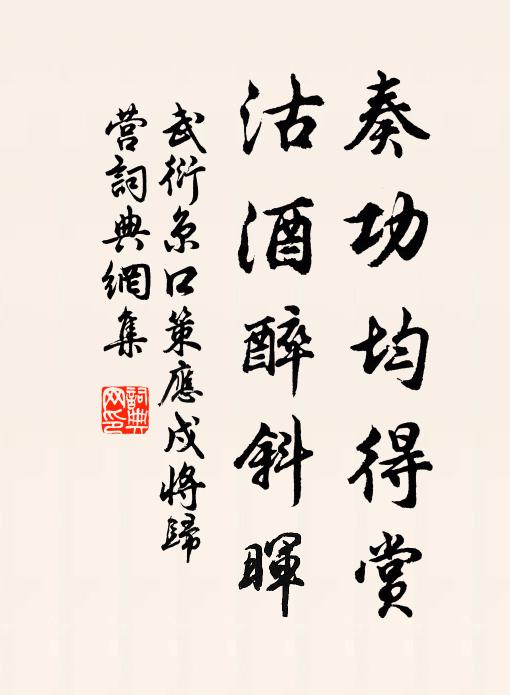 奏功均得賞
沽酒醉斜暉
武衍京口策應戍將歸
营詞典網集
詞典网印